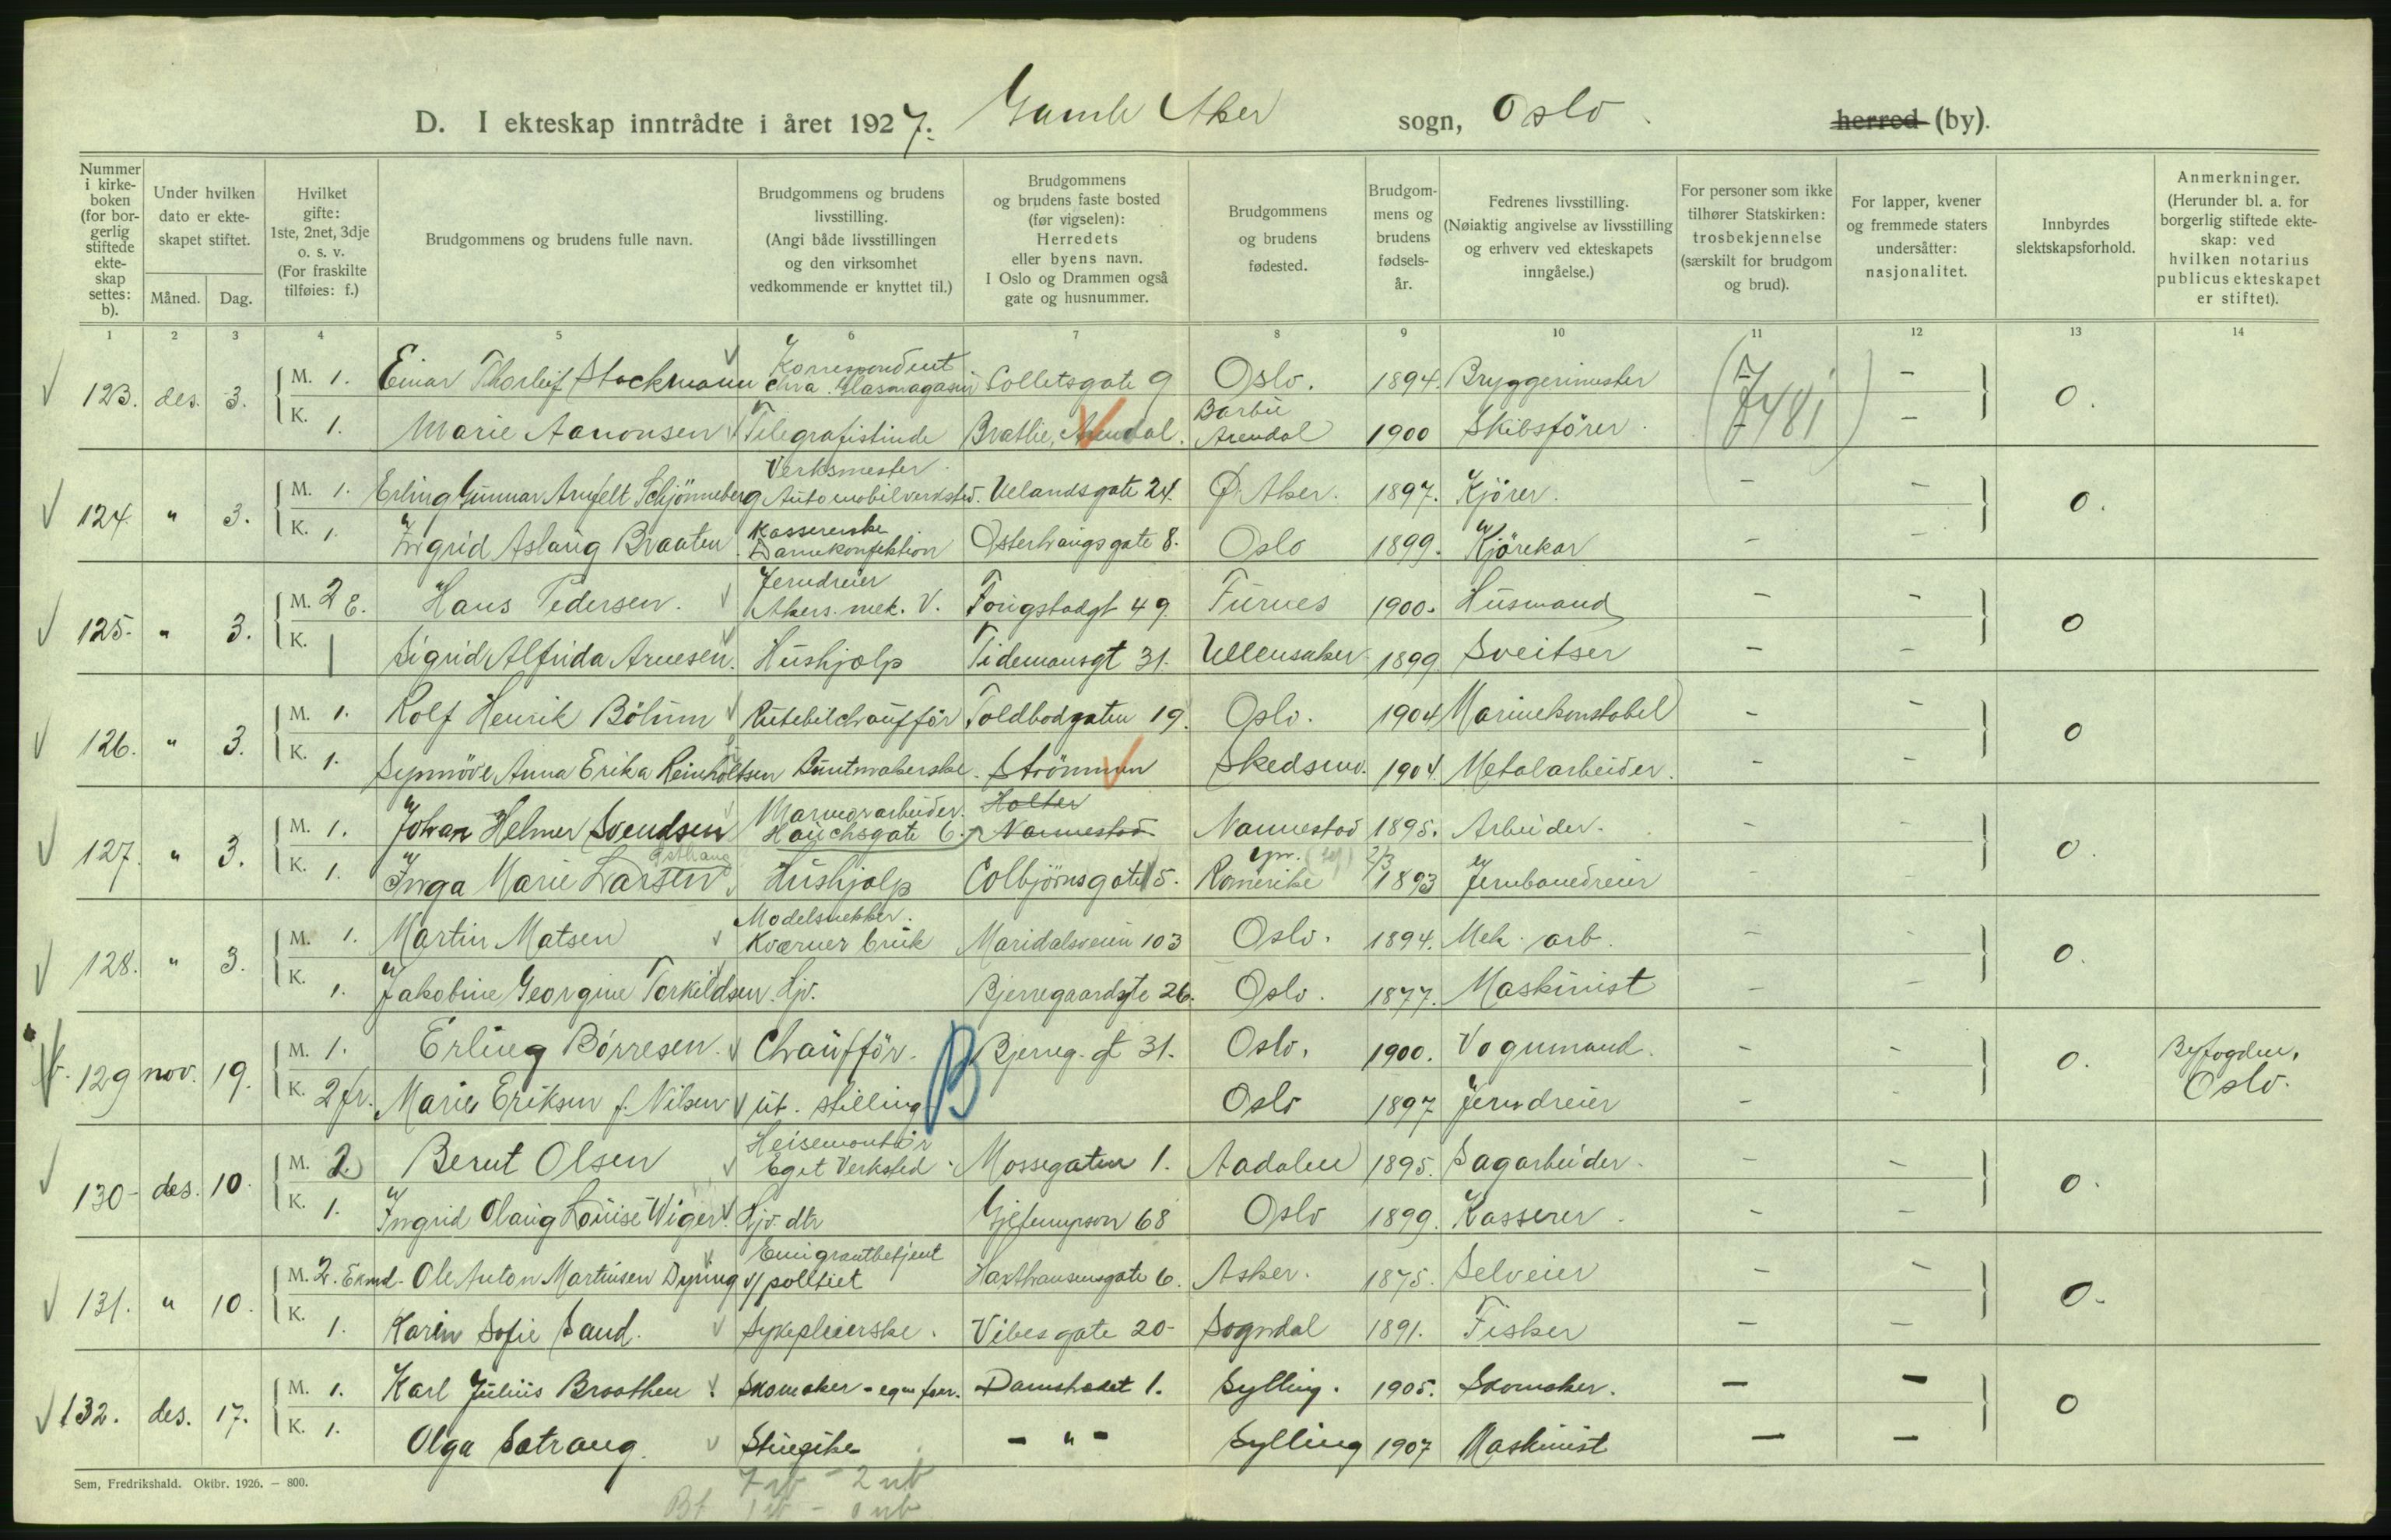 D. I ekteskap inntrådte i året 1927. Gamle Aker sogn, Oslo. herred (by).
Nummer i kirke-boken (for bor-gerlig stiftede ekte-skap settes: b).
Under hvilken dato er ekte-skapet stiftet.
Måned. Dag.
Hvilket gifte: 1ste, 2net, 3dje o. s. v. (For fraskilte tilføies: f.)
Brudgommens og brudens fulle navn.
Brudgommens og brudens livsstilling. (Angi både livsstillingen og den virksomhet vedkommende er knyttet til.)
Brudgommens og brudens faste bosted (før vigselen): Herredets eller byens navn. I Oslo og Drammen også gate og husnummer.
Brudgommens og brudens fødested.
Brudgom-mens og brudens fødsels-år.
Fedrenes livsstilling. (Nøiaktig angivelse av livsstilling og erhverv ved ekteskapets inngåelse.)
For personer som ikke tilhører Statskirken: trosbekjennelse (særskilt for brudgom og brud).
For lapper, kvener og fremmede staters undersåtter: nasjonalitet.
Innbyrdes slektskapsforhold.
Anmerkninger. (Herunder bl. a. for borgerlig stiftede ekte-skap: ved hvilken notarius publicus ekteskapet er stiftet).
1 2 3 4 5 6 7 8 9 10 11 12 13 14
123. des. 3. M. 1. Einar Thorleif Stockmann Korrespondent Chra. Glasmagasin Colletsgate 9 Oslo. 1894. Bryggerimester - 0.
K. 1. Marie Aanonsen Telegrafistinde Bratlie, Arendal. Barbu Arendal 1900 Skibsfører. 7481 -
124. " 3. M. 1. Erling Gunnar Arnfelt Schjønneberg Verksmester Automobilverksted. Uelandsgate 24. Ø. Aker. 1897. Kjører. - - 0.
K. 1. Ingrid Aslaug Braaten Kassererske Damekonfektion Østerhaugsgate 8. Oslo 1899. Kjørekar - -
125. " 3. M. 2 E. Hans Pedersen. Jerndreier Akers mek. V. Tougstadgt 49. Furnes 1900. Husmand - - 0
K. 1 Sigrid Alfrida Arnesen. Hushjælp Tidemansgt 31. Ullensaker 1899. Sveitser - -
126. " 3. M. 1. Rolf Henrik Böhum Rutebilchauffør Toldbodgaten 19. Oslo. 1904 Marinekonstabel - - 0
K. 1. Synnöve Anna Erika Reinholtsen Buntmakerske. Strømmen Skedsmo. 1904. Metalarbeider. - -
127. " 3. M. 1. Johan Helmer Svendsen Marmorarbeider. Hauchsgate 6. Holter Nannestad Nannestad 1895. Arbeider. - - 0.
K. 1. Inga Marie Larsen Østhaug Hushjælp Colbjørnsgate 5. Romerike 2/3 1893 Jernbanedreier - -
128. " 3. M. 1. Martin Matsen Modelsnekker. Kværner bruk Maridalsveien 103 Oslo. 1894. Mek. arb. - - 0.
K. 1. Jakobine Georgine Torkildsen. Hjv. Bjerregaardsgte 26. Oslo. 1877. Maskinist - -
129 nov. 19. M. 1. Erling Børresen. Chauffør. B Bjerreg. gt 31. Oslo. 1900. Vognmand. - - 0. Byfogden,
K. 2 fr. Marie Eriksen f. Nilsen ut. stilling Oslo 1897 Jerndreier - - Oslo.
130 des. 10. M. 2 Bernt Olsen Heisemontør Eget Verksted. Mossegaten 1. Aadalen 1895. Sagarbeider. - - 0.
K. 1. Ingrid Olaug Louise Wiger. Hjv. dtr Gjetemyrsvn 68 Oslo 1899. Kasserer. - -
131. " 10. M. 2. Enkmd. Ole Anton Martinsen Dyring Emigrantbetjent v/ politiet Haxthausensgate 6. Asker. 1875. Selveier - - 0.
K. 1. Karin Sofie Sand. Sykepleierske. Vibesgate 20 Sogndal 1891. Fisker - -
132. des. 17. M. 1. Karl Julius Braathen. Skomaker - egen forr. Damstredet 1. Sylling. 1905. Skomaker. - - 0
K. 1. Olga Sætrang. Stuepike - " - Sylling 1907 Maskinist - -
Sem, Fredrikshald. Oktbr. 1926. — 800.